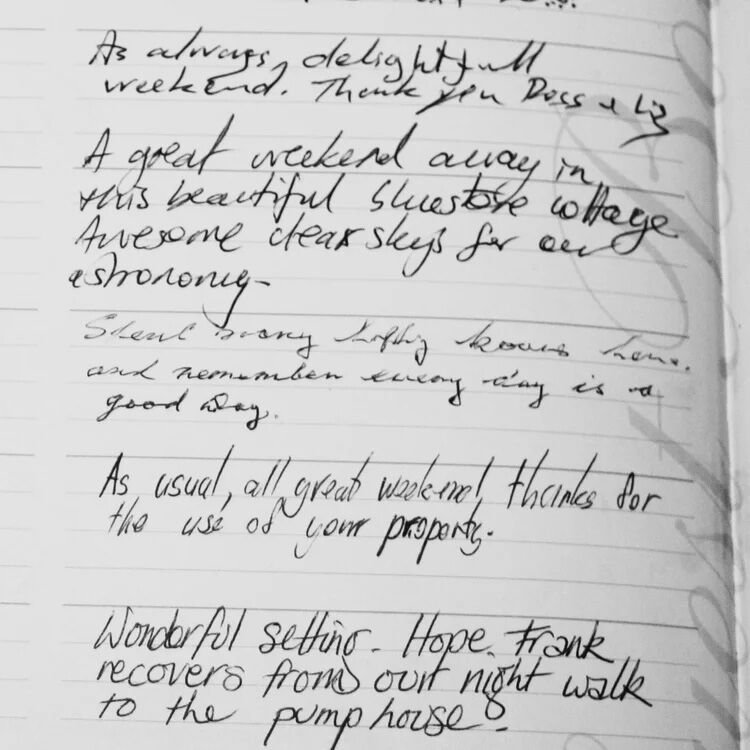 As always, delightfull
weekend. Thank you Doss & Liz
A great weekend away in
this beautiful bluestone cottage
Awesome clear skys for our
astronomy-
Spent many happy hours here.
and remember every day is a
good day.
As usual, all great weekend, thanks for
the use of your property.
Wonderful setting. Hope Frank
recovers from our night walk
to the pump house!